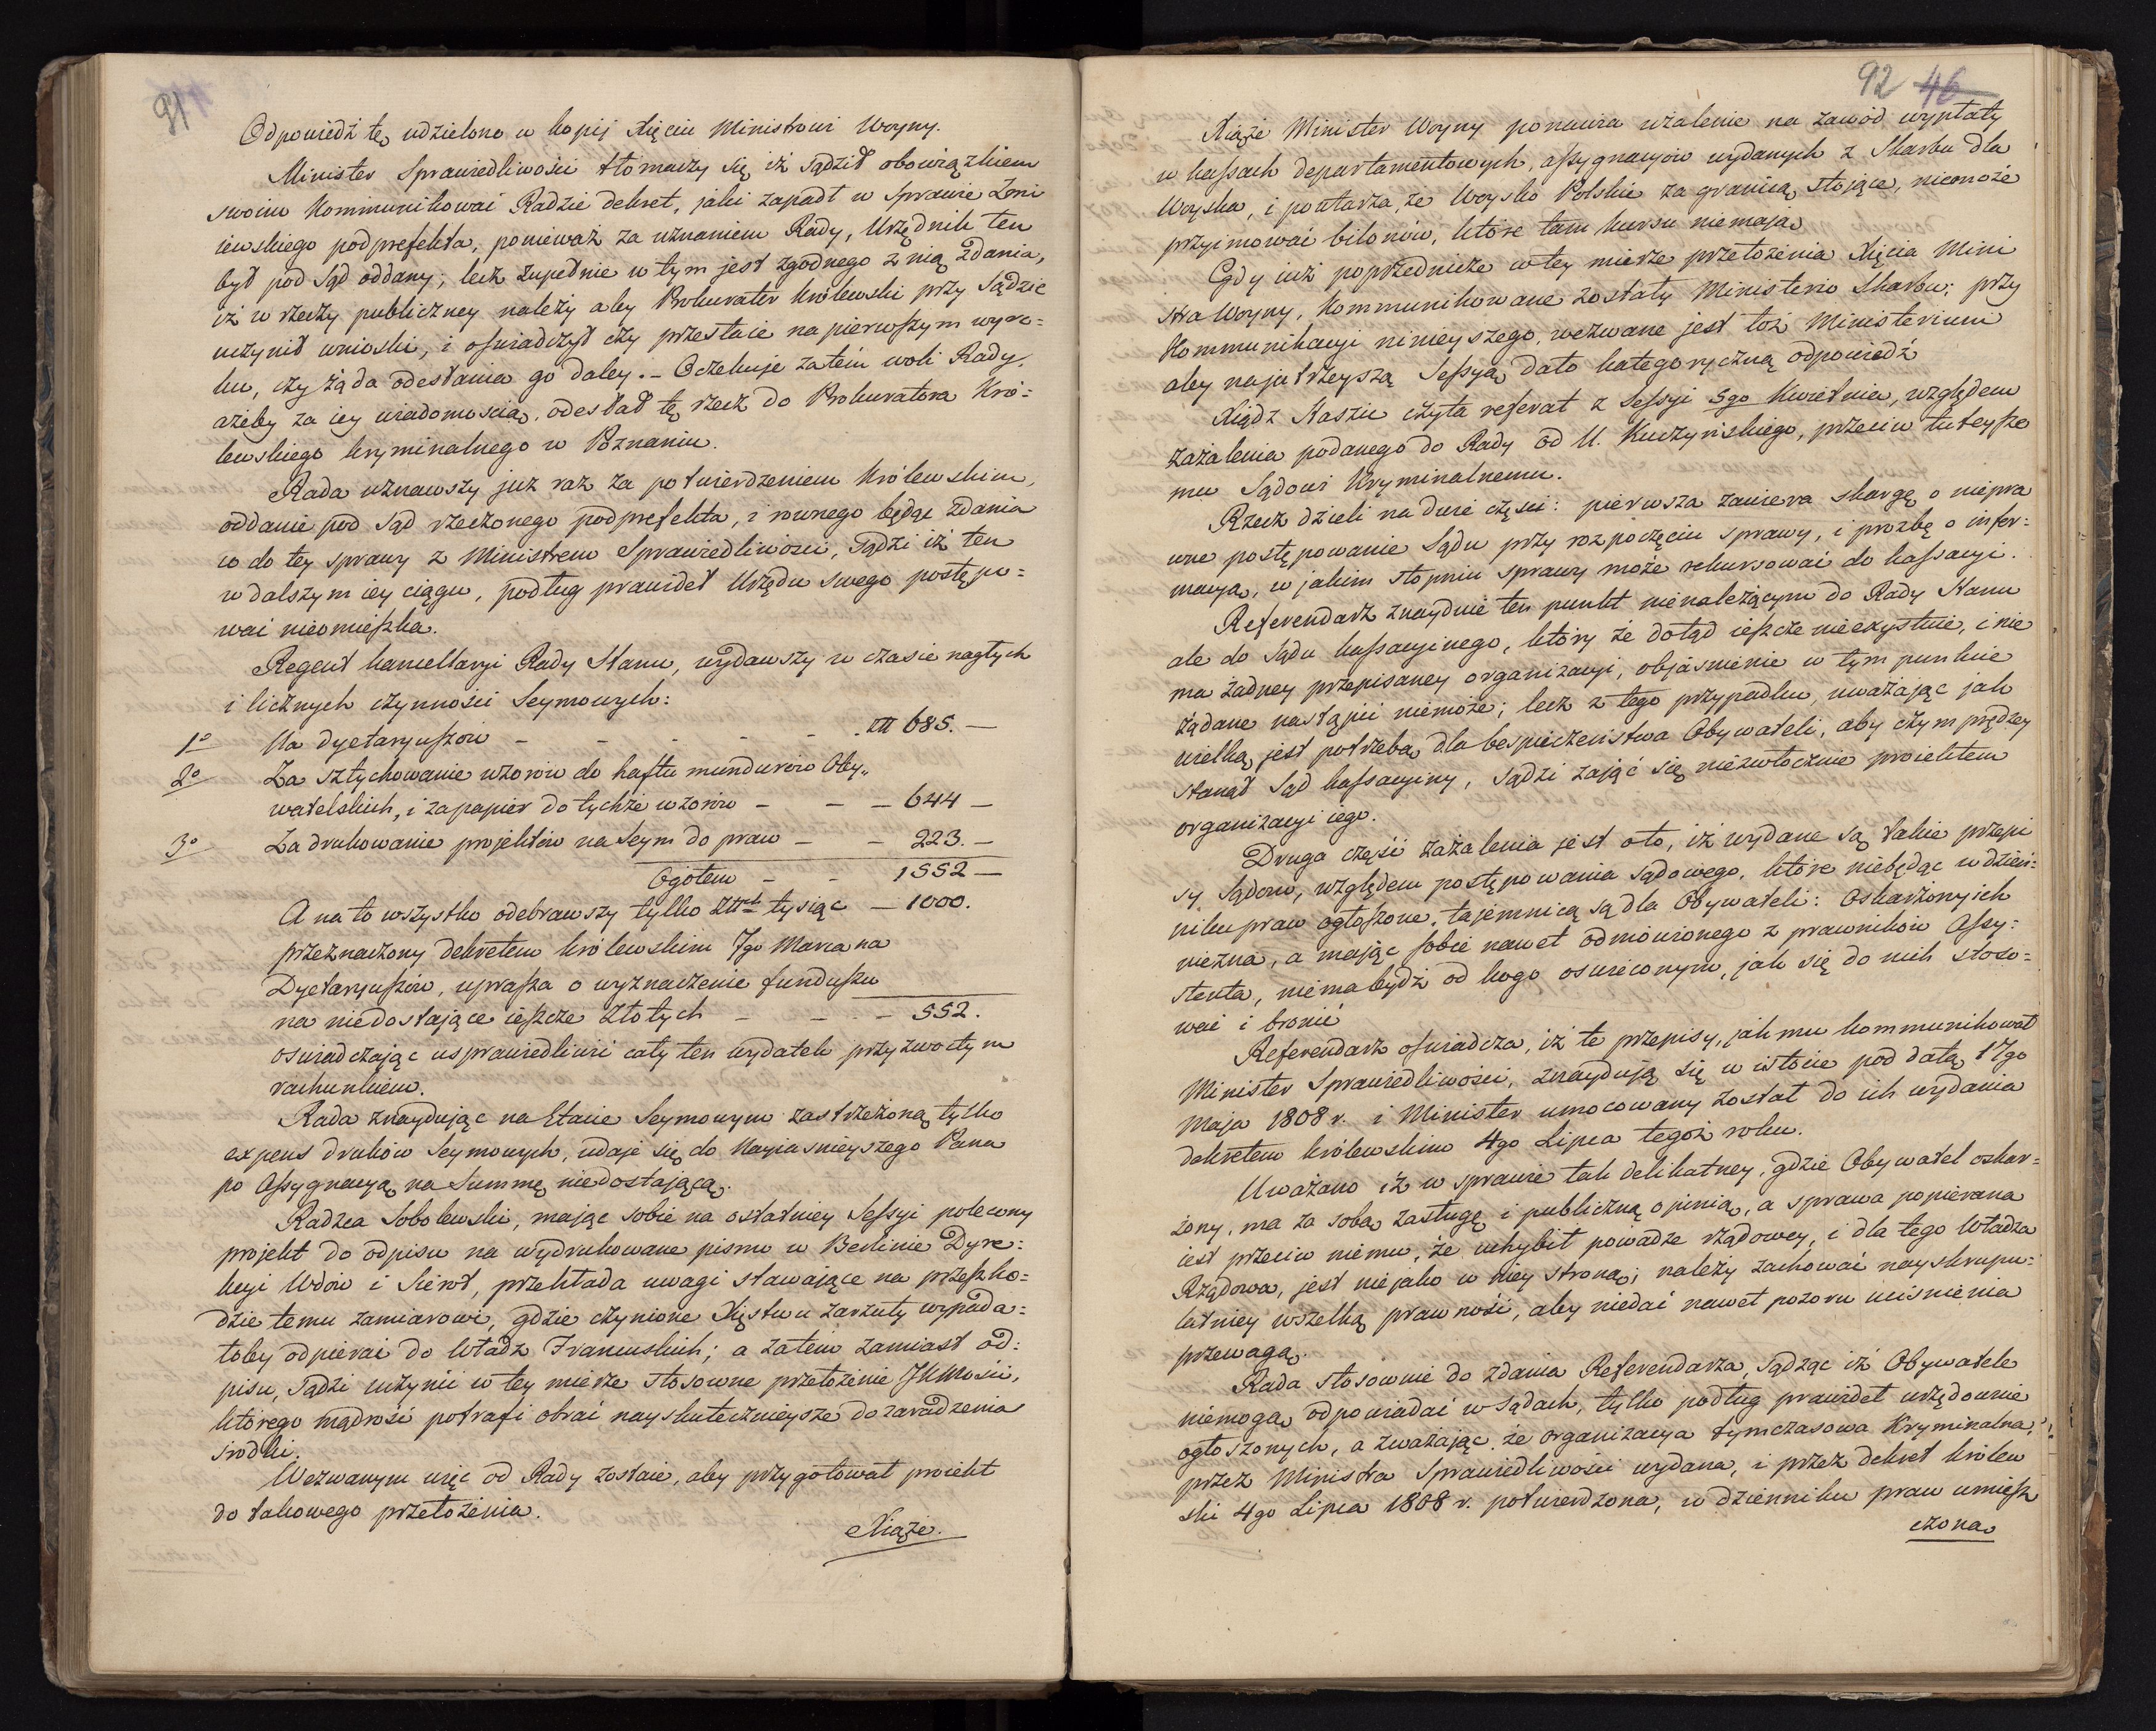 91
Odpowiedź tę udzielono w kopij Xięciu Ministrowi Woyny.
Minister Sprawiedliwości tłomaczy się iż sądził obowiązkiem
swoim Kommunikować Radzie dekret, jaki zapadł w Sprawie Zeni
iewskiego podprefekta, ponieważ za uznaniem Rady, Urzędnik ten
był pod Sąd oddany; lecz zupełnie w tym jest zgodnego z nią zdania,
iż w rzeczy publiczney należy aby Prokurator Królewski przy Sądzie
uczynił wnioski, i ośwfiadczył czy przestaie na pierwszym wyro=
ku, czy żąda odesłania go daley. – Oczekuje zatem woli Rady,
ażeby za iey wiadomością, odesłał tę rzecz do Prokuratora Kró=
lewskiego kryminalnego w Poznaniu.
Rada uznawszy już raz za potwierdzeniem Królewskim,
oddanie pod Sąd rzeczonego podprefekta, i rownego będąc zdania
co do tey sprawy z Ministrem Sprawiedliwości, Sądzi iż ten
w dalszym iey ciągu, podług prawideł Urzędu swego postępo=
wać nieomieszka.
Regent kancellaryi Rady Stanu, wydawszy w czasie nagłych
i licznych czynności Seymowych:
1° Na dyetaryuszów – – – – – . złł 685. –
2° Za sztychowanie wzorów do haftu mundurów Oby„
watelskich, i za papier do tychże wzorów – – – 644 –
3° Za drukowanie projektów na Seym do praw – – 223. –
Ogółem – – 1552 –
A na to wszystko odebrawszy tylko Złłch tysiąc – 1000.
przeznaczony dekretem królewskim 7go Marca na
Dyetaryuszów, uprasza o wyznaczenie funduszu
na niedostające ieszcze Złotych – – – 552.
oswiadczając usprawiedliwić cały ten wydatek przyzwoitym
rachunkiem.
Rada znaydując na Etacie Seymowym zastrzeżoną tylko
expens druków Seymowych, udaje się do Nayiasnieyszego Pana
po Assygnacyą na Summę niedostającą.
Radzca Sobolewski, mając sobie na ostatniey Sessyi polecony
projekt do odpisu na wydrukowane pismo w Berlinie Dyre=
kcyi Wdów i Sierot, przekłada uwagi stawające na przeszko=
dzie temu zamiarowi, gdzie czynione Xięstwu zarzuty wypada=
łoby odpierać do Władz Francuskich; a zatem zamiast od=
pisu, Sądzi uczynić w tey mierze stosowne przełożenie JKMości,
którego mądrość potrafi obrać nayskutecznieysze do zaradzenia
środki.
Wezwanym więc od Rady zostaie, aby przygotował proiekt
do takowego przełożenia.
Xiąże.
92 46
Xiąże Minister Woyny ponawia użalenie na zawód wypłaty
w kassach departamentowych, assygnacyów wydanych z Skarbu dla
Woyska, i powtarza, że Woysko Polskie za granicą stojące, niemoże
przyimować bilonów, które tam kursu niemają
Gdy już poprzednicze w tey mierze przełożenia Xięcia Mini
stra Woyny, Kommunikowane zostały Ministerio Skarbu; przy
Kommunikacyi ninieyszego, wezwane jest toż Ministerium
aby na jutrzeyszą Sessyą dało kategoryczną odpowiedź
Xiądz Staszic czyta referat z Sessyi 5go Kwietnia, względem
zażalenia podanego do Rady od U. Kuczyńskiego, przeciw tuteysze
mu Sądowi Kryminalnemu.
Rzecz dzieli na dwie części: pierwsza zawiera skargę o niepra
wne postępowanie Sądu przy rozpoczęciu sprawy, i prozbę o infor=
macyą, w jakim stopniu sprawy może rekursować do kassacyi.
Referendarz znayduie ten punkt nienależącym do Rady Stanu
ale do Sądu kassacyinego, który że dotąd ieszcze nieexystuie, i nie
ma żadney przepisaney organizacyi, objasnienie w tym punkcie
żądane nastąpić niemoże; lecz z tego przypadku, uważając jak
wielką jest potrzeba dla bespieczeństwa Obywateli, aby czym prędzey
stanął Sąd kassacyiny, sądzi zająć się niezwłocznie proiektem
organizacyi iego.
Druga część zażalenia jest oto, iż wydane są takie przepi
sy Sądom, względem postępowania Sądowego, które niebędąc w dzien=
niku praw ogłoszone, tajemnicą są dla Obywateli: Oskarżony ich
niezna, a mając sobie nawet odmówionego z prawników Assy=
stenta, niema bydź od kogo oswieconym, jak się do nich stoso=
wać i bronić
Referendarz oswiadcza, iż te przepisy, jak mu kommunikował
Minister Sprawiedliwości, znaydują się w istocie pod datą 17go
Maja 1808 r. i Minister umocowany został do ich wydania
dekretem królewskim 4go Lipca tegoż roku.
Uważano iż w sprawie tak delikatney, gdzie Obywatel oskar=
żony, ma za sobą zasługę i publiczną opinią, a sprawa popierana
iest przeciw niemu, że uchybił powadze rządowey, i dla tego Władza
Rządowa, jest niejako w niey stroną; należy zachować nayskrupu=
latniey wszelką prawność, aby niedać nawet pozoru uciśnienia
przewagą.
Rada stosownie do zdania Referendarza, sądząc iż Obywatele
niemogą odpowiadać w Sądach, tylko podług prawideł urzędownie
ogłoszonych, a zważając że organizacya tymczasowa Kryminalna,
przez Ministra Sprawiedliwości wydana, i przez dekret królew
ski 4go Lipca 1808 r. potwierdzona, w dzienniku praw umiesz
czoną